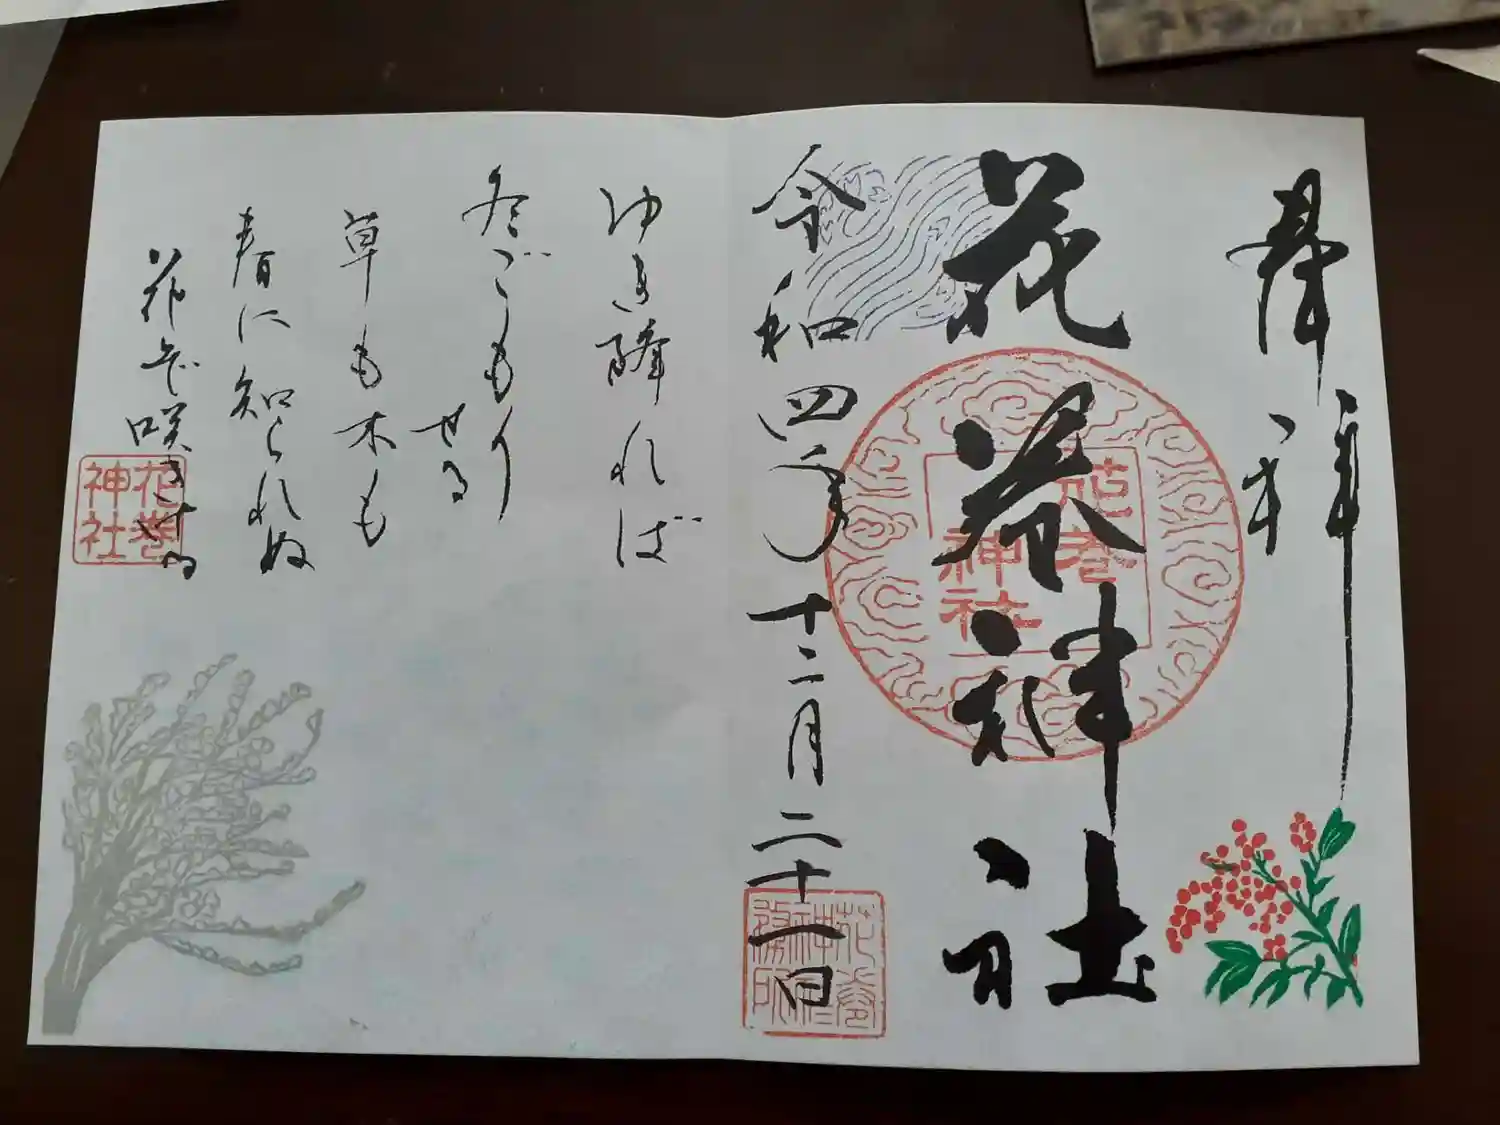 奉拝
花巻神社
花巻
神社
令和四年十二月二十一日
花巻
神社
務所
ゆき降れば
冬ごもり
せる
草も木も
春に知られぬ
花ぞ咲きける
花巻
神社